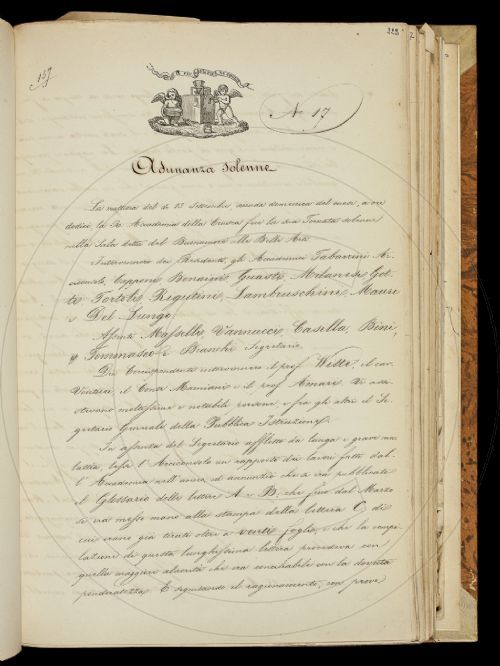 157
222
7
N. 17
Adunanza solenne
La mattina del dì 13 Settembre, seconda domenica del mese, a ore
dodici la R. Accademia della Crusca fece la sua Tornata solenne
nella Sala detta del Buonumore alle Belle Arti
Intervennero dei Residenti, gli Accademici Tabarrini Ar-
ciconsolo, Capponi, Bonaini, Guasti, Milanesi, Got-
ti, Tortoli, Rigutini, Lambruschini, Mauri
e Del Lungo;
Assenti Masselli, Vannucci, Casella, Bini,
Tommaseo e Bianchi Segretario.
Dei Corrispondenti intervennero il prof. Witte, il cav.
Venturi, il Conte Mamiani e il prof. Amari. Vi assi-
stevano moltissime e notabili persone, e fra gli altri il Se-
gretario Generale della Pubblica Istruzione.
In assenza del Segretario afflitto da lunga e grave ma-
lattia, lesse l'Arciconsolo un rapporto dei lavori fatti dal-
l'Accademia nell'anno, ed annunziò che s'era pubblicato
il Glossario delle lettere A e B; che fino dal Marzo
si era messo mano alla stampa della lettera C, di
cui erano già tirati oltre a venti fogli, e che la compi-
lazione di questa lunghissima lettera procedeva con
quella maggiore alacrità che era conciliabile con la dovuta
ponderatezza. E seguitando il ragionamento, con prove